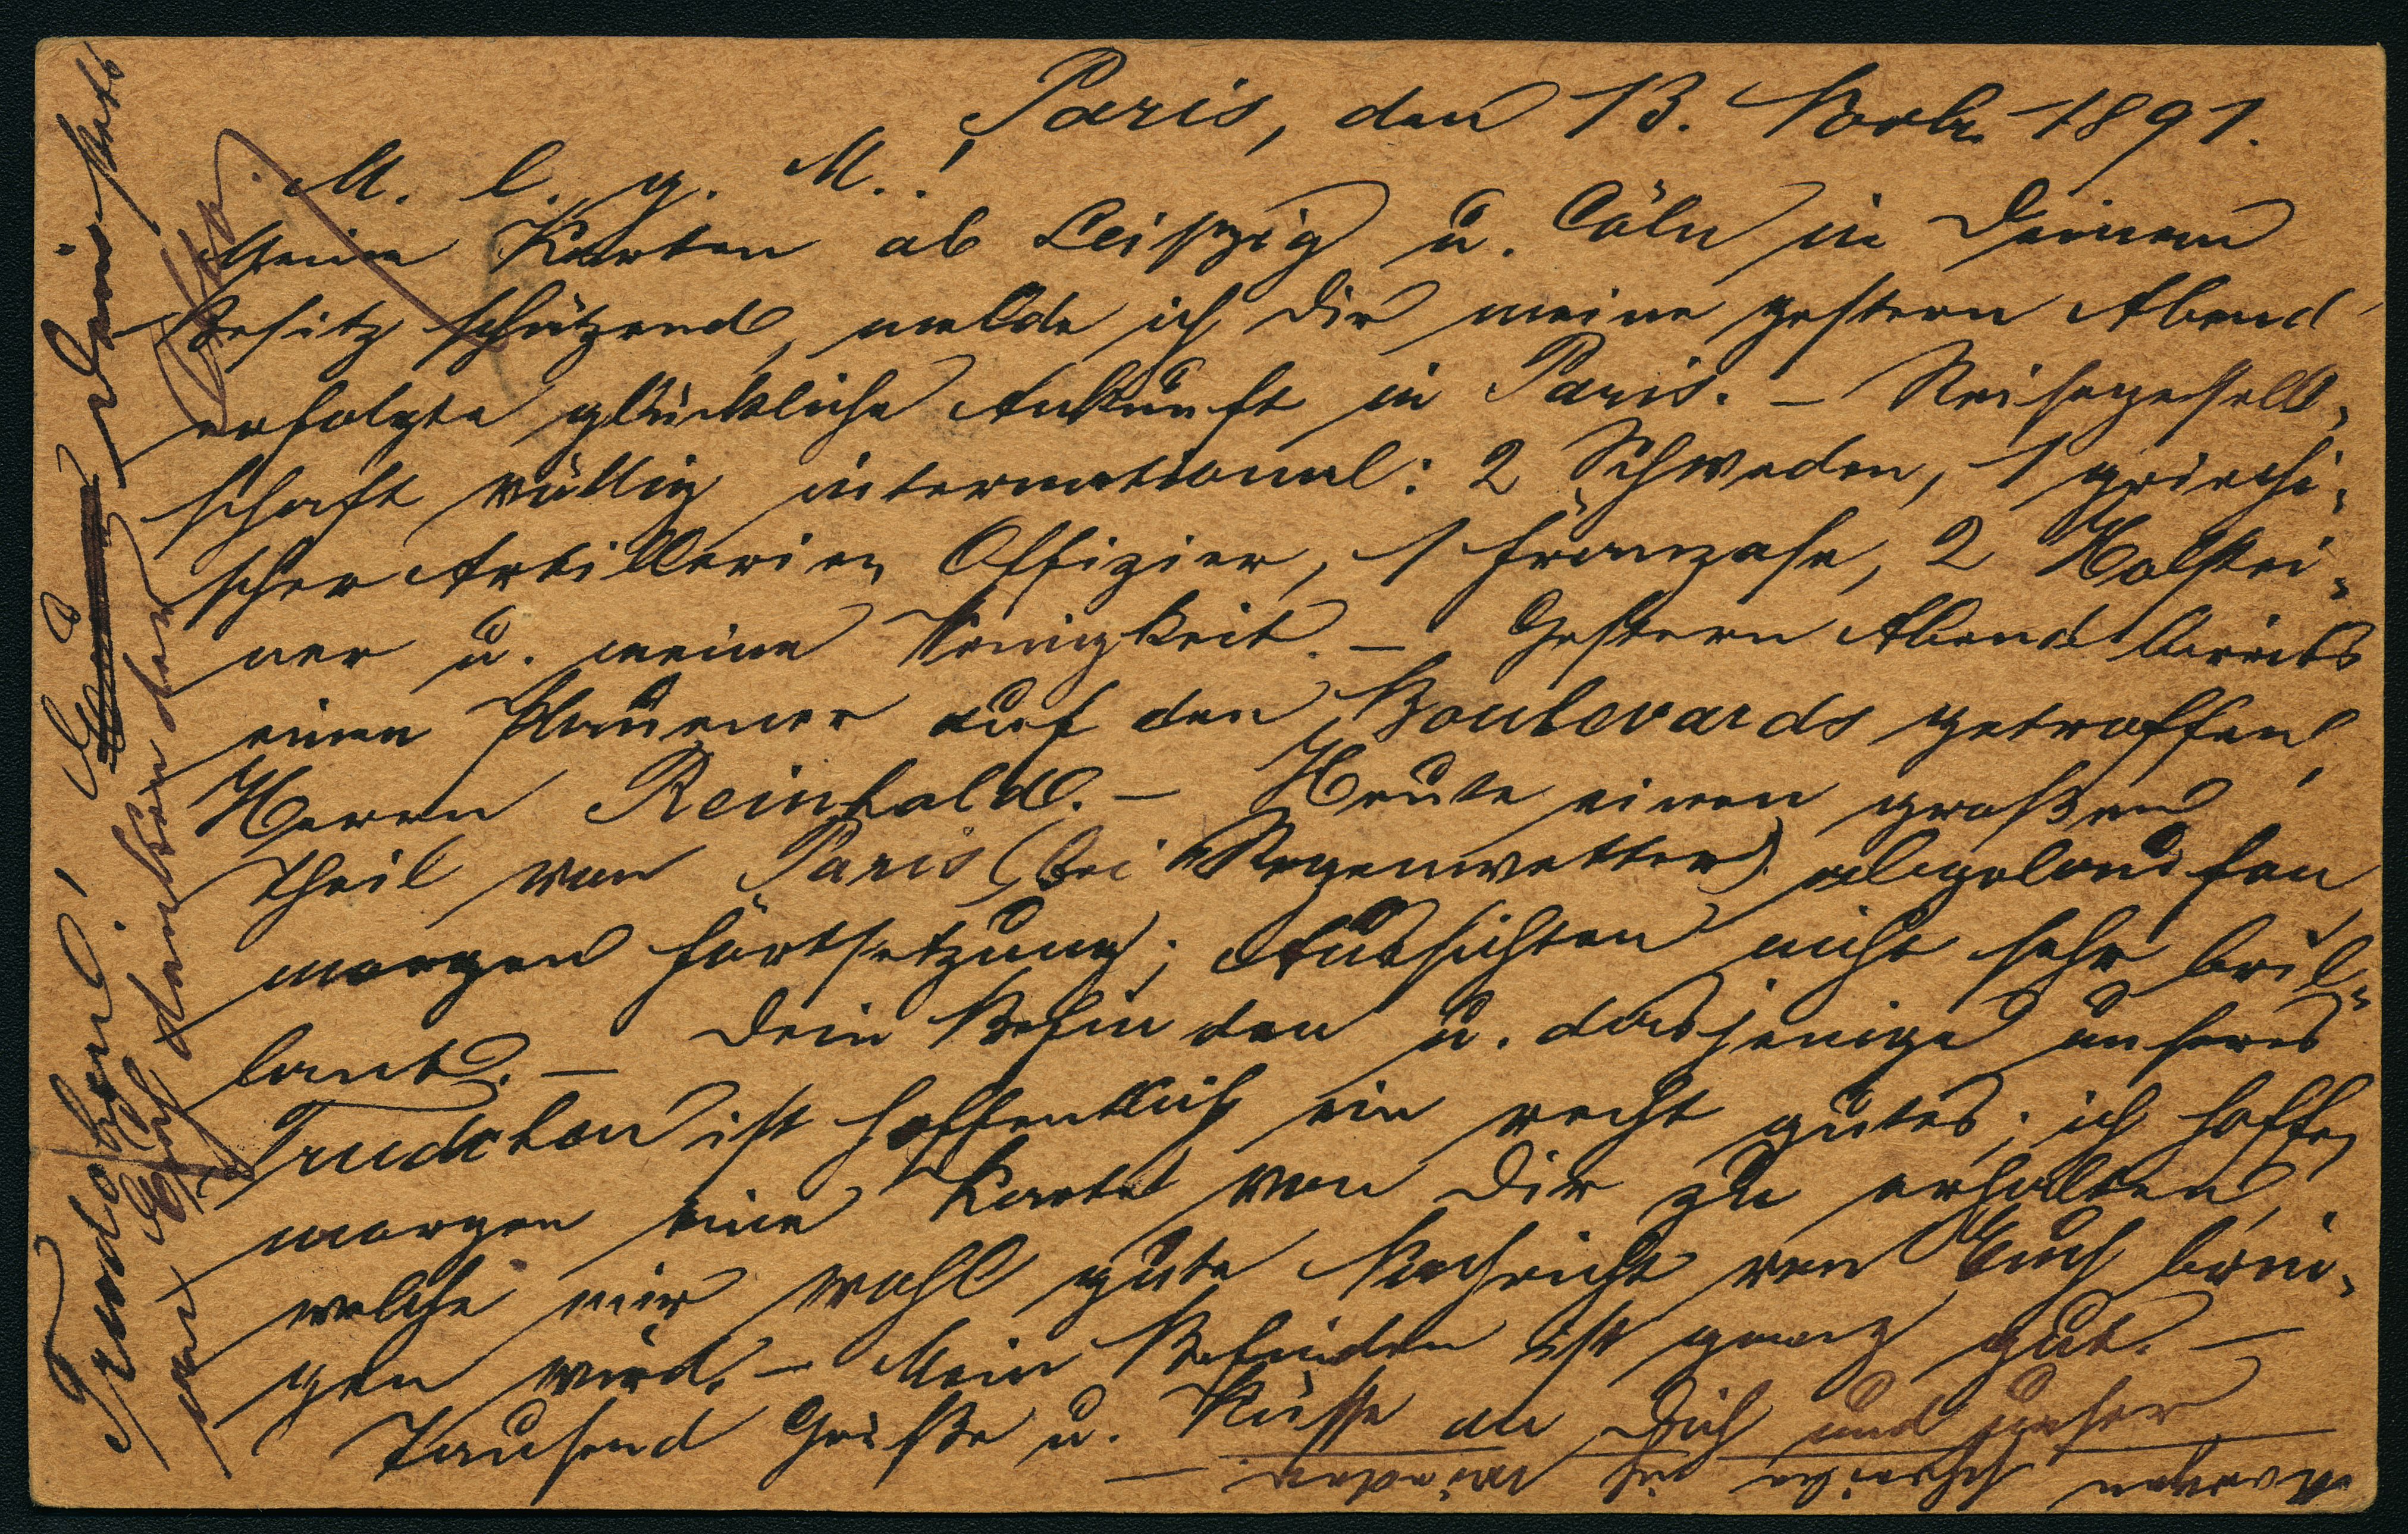 Paris, den 13. Novbr 1891.
M. l. g. M.!
Meine Karten ab Leipzig u. Cöln in Deinem
Besitz schätzend, melde ich Dir meine gestern Abend
erfolgte glückliche Ankunft in Paris. – Reisegesell-
schaft völlig international: 2 Schweden, 1 griechi-
scher Artillerie Offizier, 1 Franzose, 2 Holstei-
ner u. meine Wenigkeit. – Gestern Abend bereits
einen Plauener auf den Boulevards getroffen,
Herrn Reinhold. – Heute einen großen
Theil von Paris (bei Regenwetter) abgelaufen,
morgen Fortsetzung; Aussichten nicht sehr bril-
lant. – Dein Befinden u. dasjenige unseres
Trudchen ist hoffentlich ein recht gutes; ich hoffe,
morgen eine Karte von Dir zu erhalten,
welche mir wohl gute Nachricht von Euch brin-
gen wird. – Mein Befinden ist ganz gut. –
Tausend Grüße u. Küsse an Dich und unser
Trudchen! Euer
an Euch denkender
Otto.
Morgen schreibe ich wieder. –